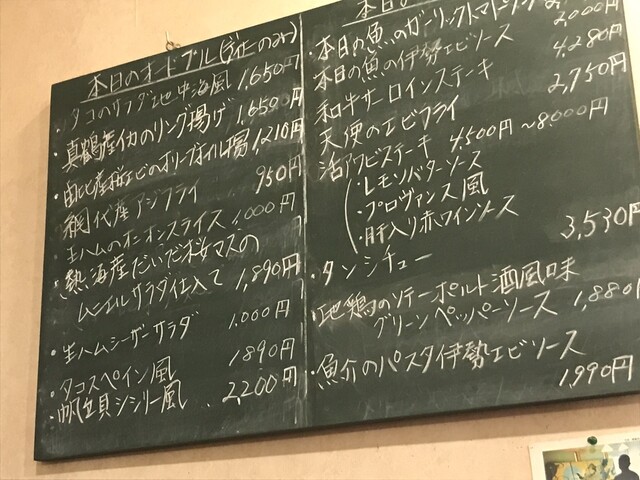 本日のオードブル(夜のみ)
・タコのサラダ地中海風 1,650円
・真鶴産イカのリング揚げ 1,650円
・由比産桜エビのオリーブオイル揚 1,210円
・網代産アジフライ 950円
・生ハムのオニオンスライス 1,000円
・熱海産だいだい桜マスの
ムニエルサラダ仕立て 1,890円
・生ハムシーザーサラダ 1,000円
・タコスペイン風 1890円
・帆立貝シシリー風 2,200円
本日の
・本日の魚のガーリックトマトソース 2,000円
・本日の魚の伊勢エビソース
和牛サーロインステーキ 4,280円
天使のエビフライ 2,750円
活アワビステーキ 4,500円〜8,000円
・レモンバターソース
・プロヴァンス風
・肝入り赤ワインソース
・タンシチュー 3,530円
・地鶏のソテーポルト酒風味
グリーンペッパーソース 1,880円
・魚介のパスタ伊勢エビソース
1,990円